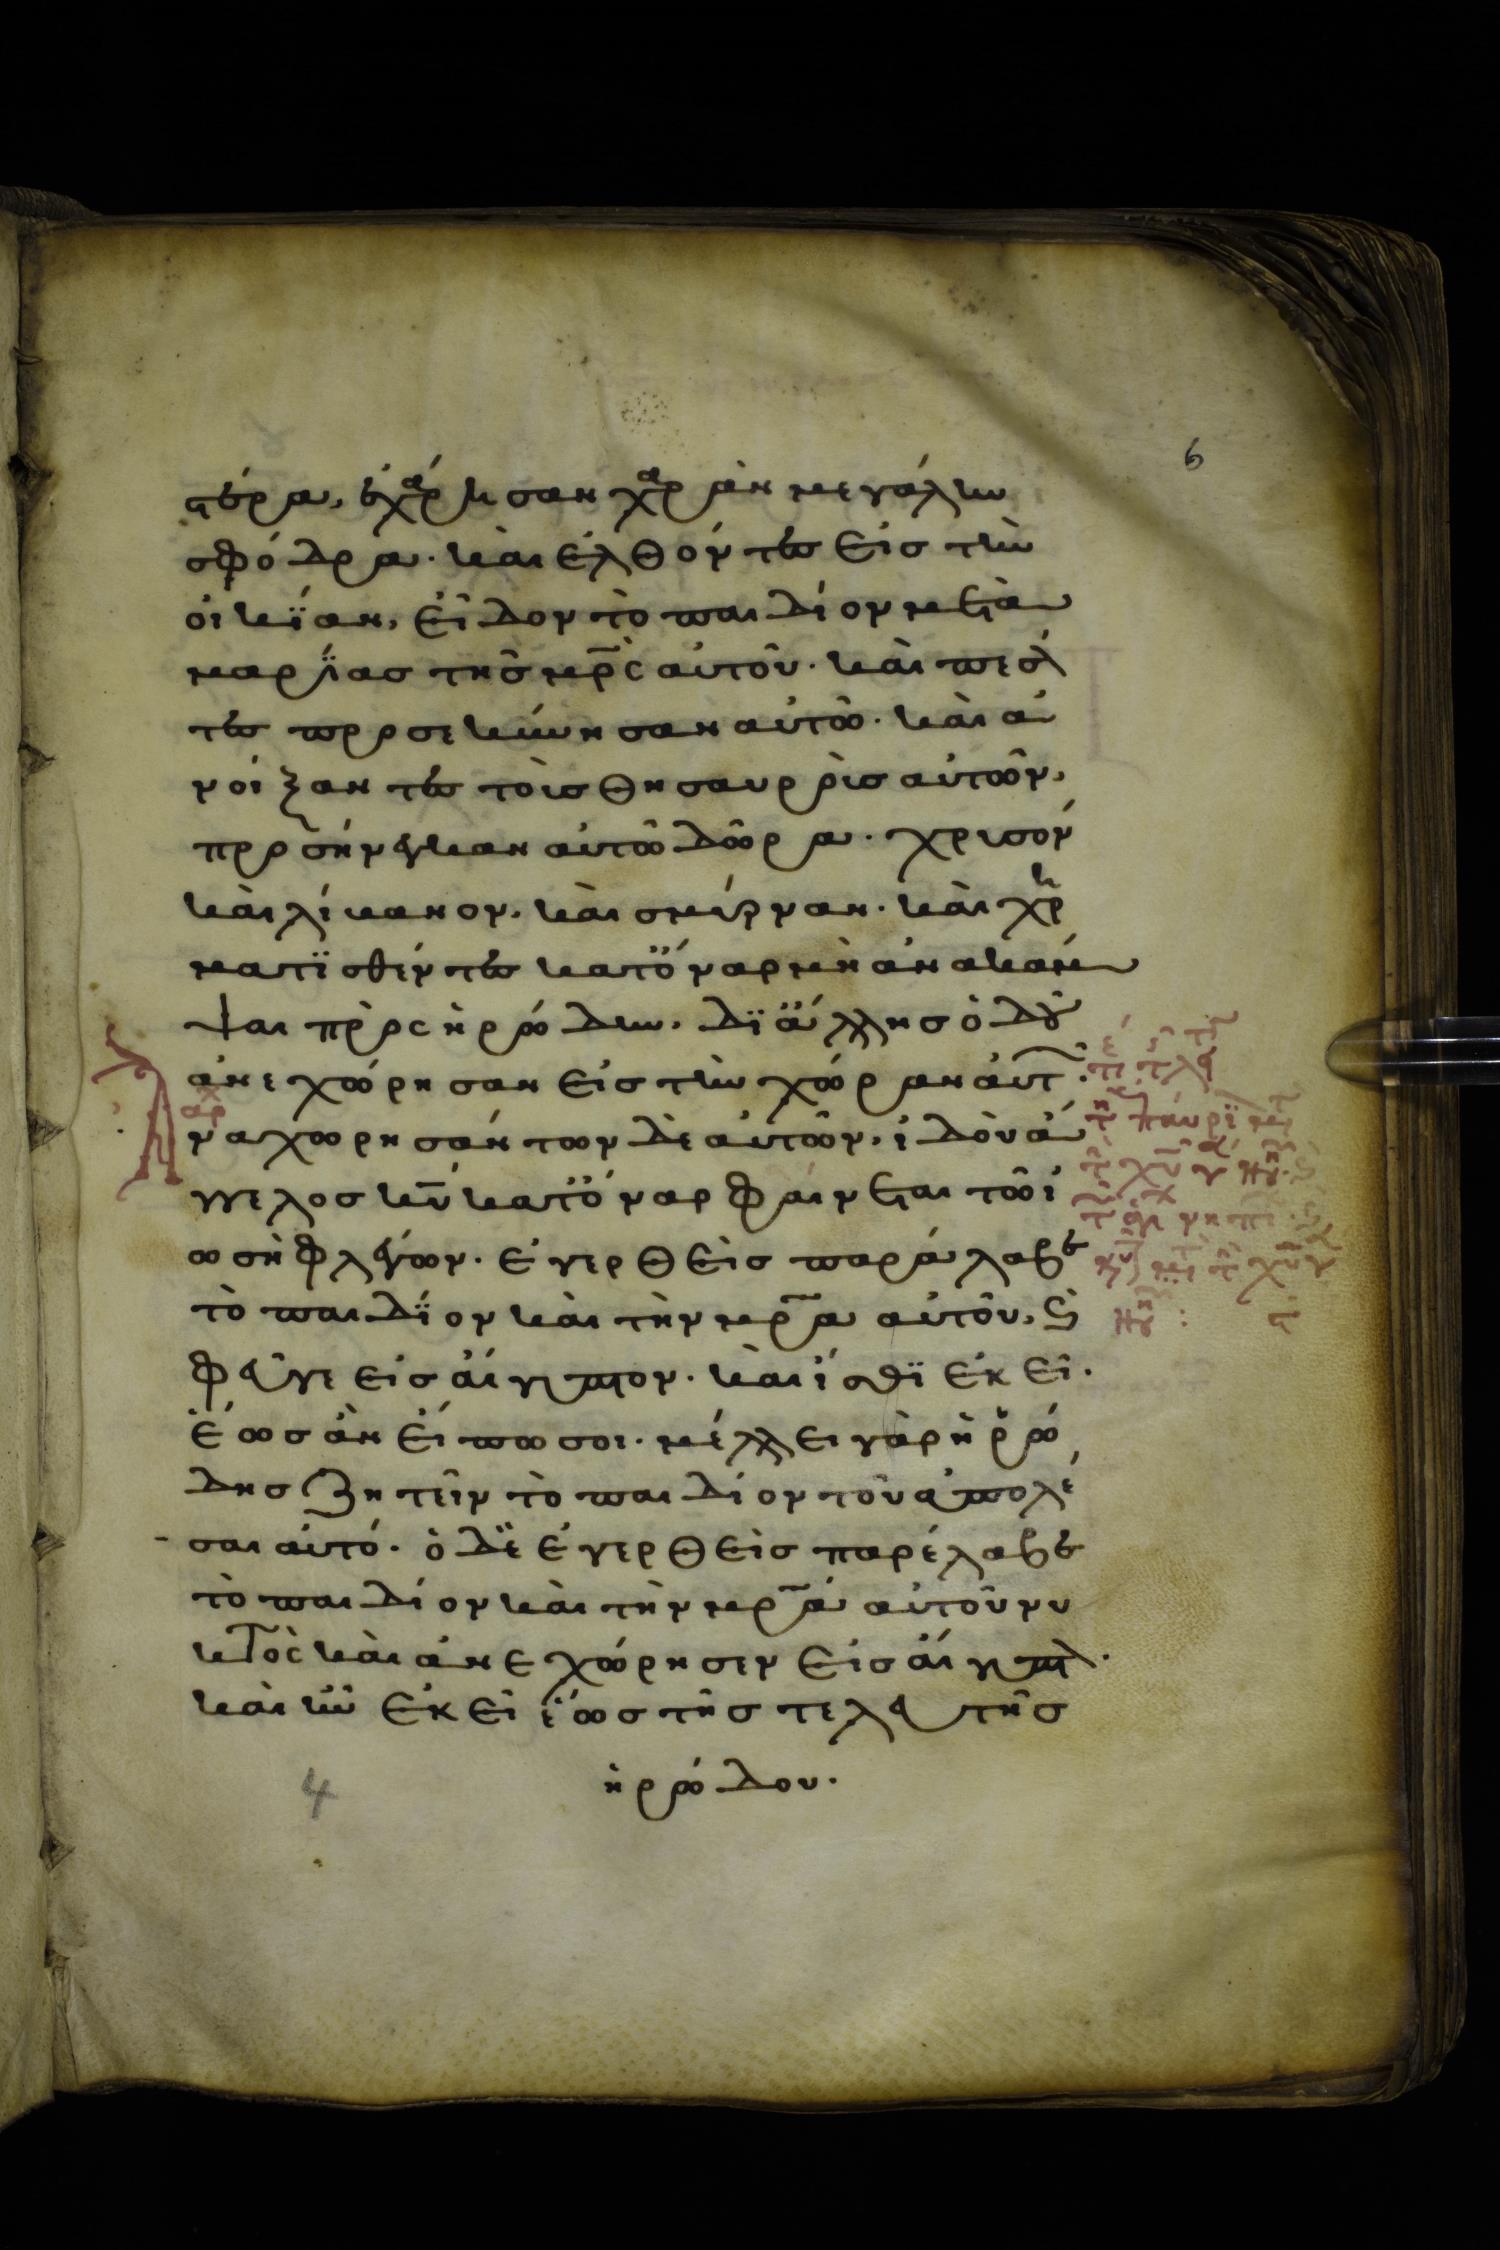 6
στέρα, ἐχάρησαν χαρὰν μεγάλην
σφόδρα. καὶ ἐλθόντες εἰς τὴν
οἰκΐαν, εἶδον τὸ παιδίον μετὰ
μαρΐας τῆς μρ̅ς αὐτοῦ. καὶ πεσόν
τες προσεκύνησαν αὐτῶ. καὶ ἀ
νοίξαντες τοὶς θησαυροὶς αὐτῶν,
προσήνεγκαν αὐτῶ δῶρα. χρισόν
καὶ λίβανον. καὶ σμύρναν. καὶ χρη
ματϊσθέντες κατ̈ όναρ μὴ ἀνακάμ
ψαι πρὸς ἡρώδην. δϊ ἄλλης ὁδοῦ
ἀνεχώρησαν εἰς τὴν χώραν αὑτ̅.
αρχ
ναχωρησάντων δὲ αὐτῶν, ἰδοὺ ἄ
γγελος κυ̅ κατ̈ όναρ φαίνεται τῶ ἰ
ωσὴφ λέγων. ἐγερθεὶς παράλαβε
τὸ παιδΐον καὶ τὴν μρ̅α αὐτοῦ, ϛ̀
φεῦγε εἰς ἄιγυπτον. καὶ ἴσθϊ ἐκεῖ.
ἕως ἂν εἴπω σοι. μέλλει γὰρ ἡρώ
δης ζητεῖν τὸ παιδίον τοῦ ἀπολέ
σαι αὐτό. ὁ δὲ ἐγερθεὶς παρέλαβε
τὸ παιδίον καὶ τὴν μρ̅ά αὐτοῦ νυ
κτὸς καὶ ἀνεχώρησεν εἰς ἄιγυπτον.
καὶ ἦν ἐκεῖ ἕως τῆς τελευτῆς
ἡρώδου.
4